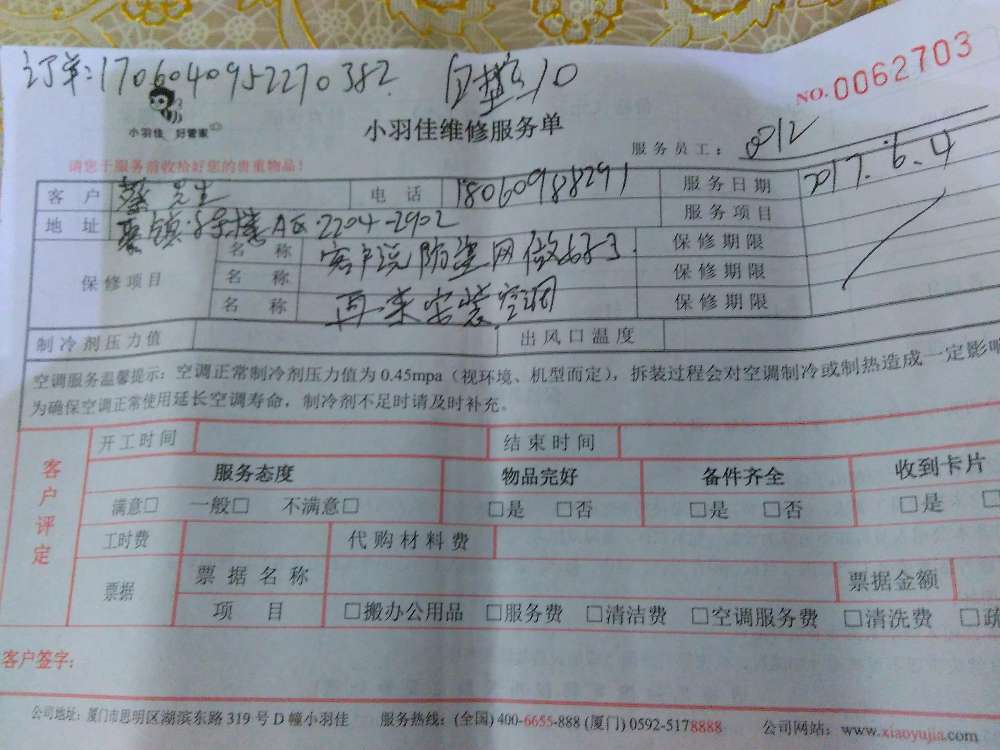 订单:1706040952270382. 10
NO.0062703
小羽佳 好管家
小羽佳维修服务单
服务员工: 0012
请您于服务前收拾好您的贵重物品!
客户 蔡先生 电话 18060988291 服务日期 2017.6.4
地址 A区.2204-2902 服务项目
保修项目 名称 客户说防盗网做好了 保修期限
名称 保修期限
名称 再来安装空调 保修期限
制冷剂压力值 出风口温度
空调服务温馨提示:空调正常制冷剂压力值为0.45mpa(视环境、机型而定),拆装过程会对空调制冷或制热造成一定影响
为确保空调正常使用延长空调寿命,制冷剂不足时请及时补充。
客户评定
开工时间 结束时间
服务态度 物品完好 备件齐全 收到卡片
满意□ 一般□ 不满意□ □是 □否 □是 □否 □是 □
工时费 代购材料费
票据 票据名称 票据金额
项目 □搬办公用品 □服务费 □清洁费 □空调服务费 □清洗费 □疏
客户签字:
公司地址:厦门市思明区湖滨东路319号D幢小羽佳 服务热线:(全国)400-6655-888 (厦门)0592-5178888 公司网站:www.xiaoyujia.com